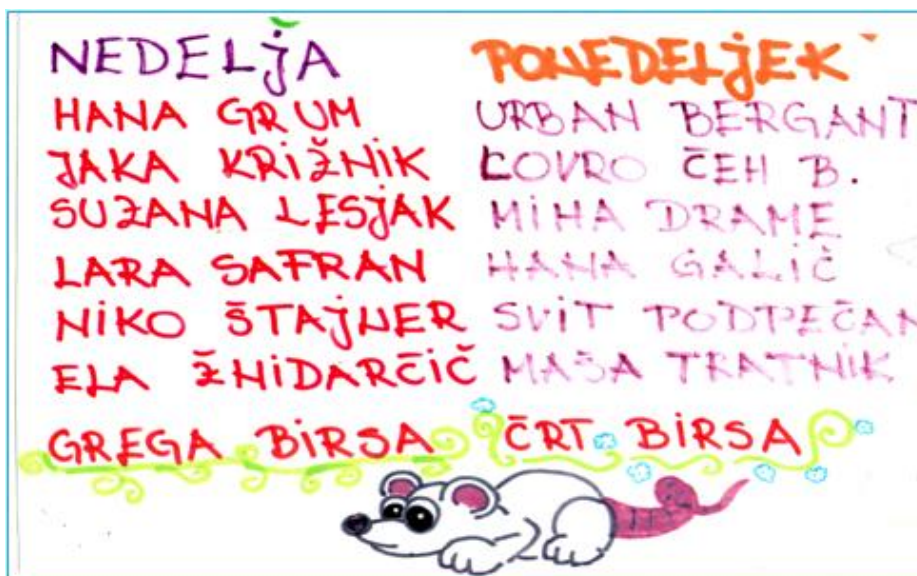 NEDELJA
HANA GRUM
JAKA KRIŽNIK
SUZANA LESJAK
LARA SAFRAN
NIKO ŠTAJNER
ELA ŽNIDARČIČ
GREGA BIRSA
PONEDELJEK
URBAN BERGANT
LOVRO ČEH B.
MIHA DRAME
HANA GALIČ
SVIT PODPEČAN
MAŠA TRATNIK
ČRT BIRSA